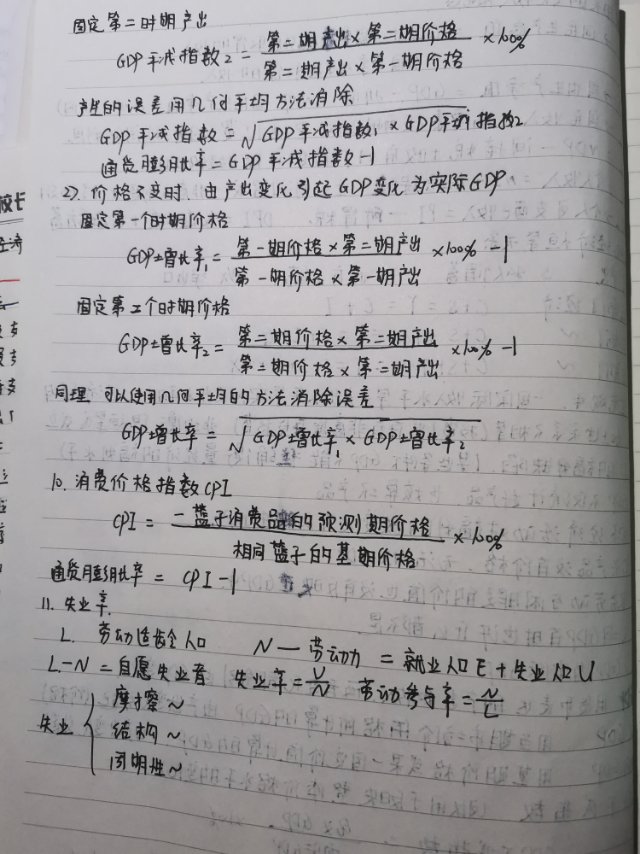 固定第二时期产出
GDP平减指数2 = 第二期产出×第二期价格 / 第二期产出×第一期价格 ×100%
产生的误差用几何平均方法消除
GDP平减指数 = √GDP平减指数1 × GDP平减指数2
通货膨胀率 = GDP平减指数-1
2). 价格不变时, 由产出变化引起GDP变化为实际GDP
固定第一个时期价格
GDP增长率1 = 第一期价格×第二期产出 / 第一期价格×第一期产出 ×100% -1
固定第二个时期价格
GDP增长率2 = 第二期价格×第二期产出 / 第二期价格×第二期产出 ×100% -1
同理 可以使用几何平均的方法消除误差
GDP增长率 = √GDP增长率1 × GDP增长率2
10. 消费价格指数CPI
CPI = 一篮子消费品的预测期价格 / 相同篮子的基期价格 ×100%
通货膨胀率 = CPI-1
11. 失业率.
L. 劳动适龄人口 N — 劳动力 = 就业人口E + 失业人口U
L-N = 自愿失业者 失业率 = U/N 劳动参与率 = N/L
失业 { 摩擦~
结构~
周期性~
校长